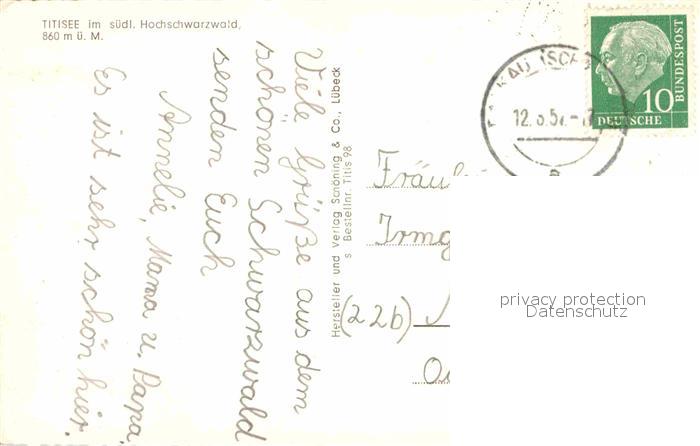 TITISEE im südl. Hochschwarzwald,
860 m ü. M.
Viele Grüße aus dem
schönen Schwarzwald
senden Euch
Annelie, Mama u. Papa.
Es ist sehr schön hier.
Hersteller und Verlag Schöning & Co., Lübeck
s Bestellnr. Titis 98
10
DEUTSCHE
BUNDESPOST
(22b)
privacy protection
Datenschutz